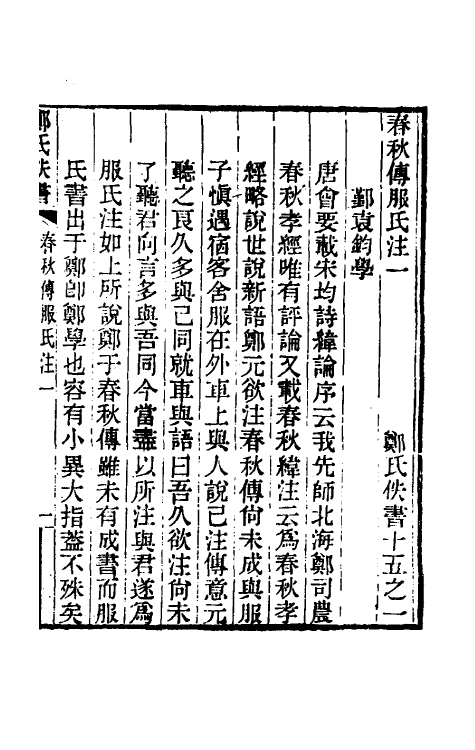 春秋傳服氏注一　　　　鄭氏佚書十五之一
鄞袁鈞學
唐會要載宋均詩緯論序云我先師北海鄭司農
春秋孝經唯有評論又載春秋緯注云爲春秋孝
經略說世說新語鄭元欲注春秋傳尙未成與服
子愼遇宿客舍服在外車上與人說己注傳意元
聽之良久多與己同就車與語曰吾久欲注尙未
了聽君向言多與吾同今當盡以所注與君遂爲
服氏注如上所說鄭于春秋傳雖未有成書而服
氏書出于鄭卽鄭學也容有小異大指葢不殊矣
鄭氏佚書　春秋傳服氏注一　一